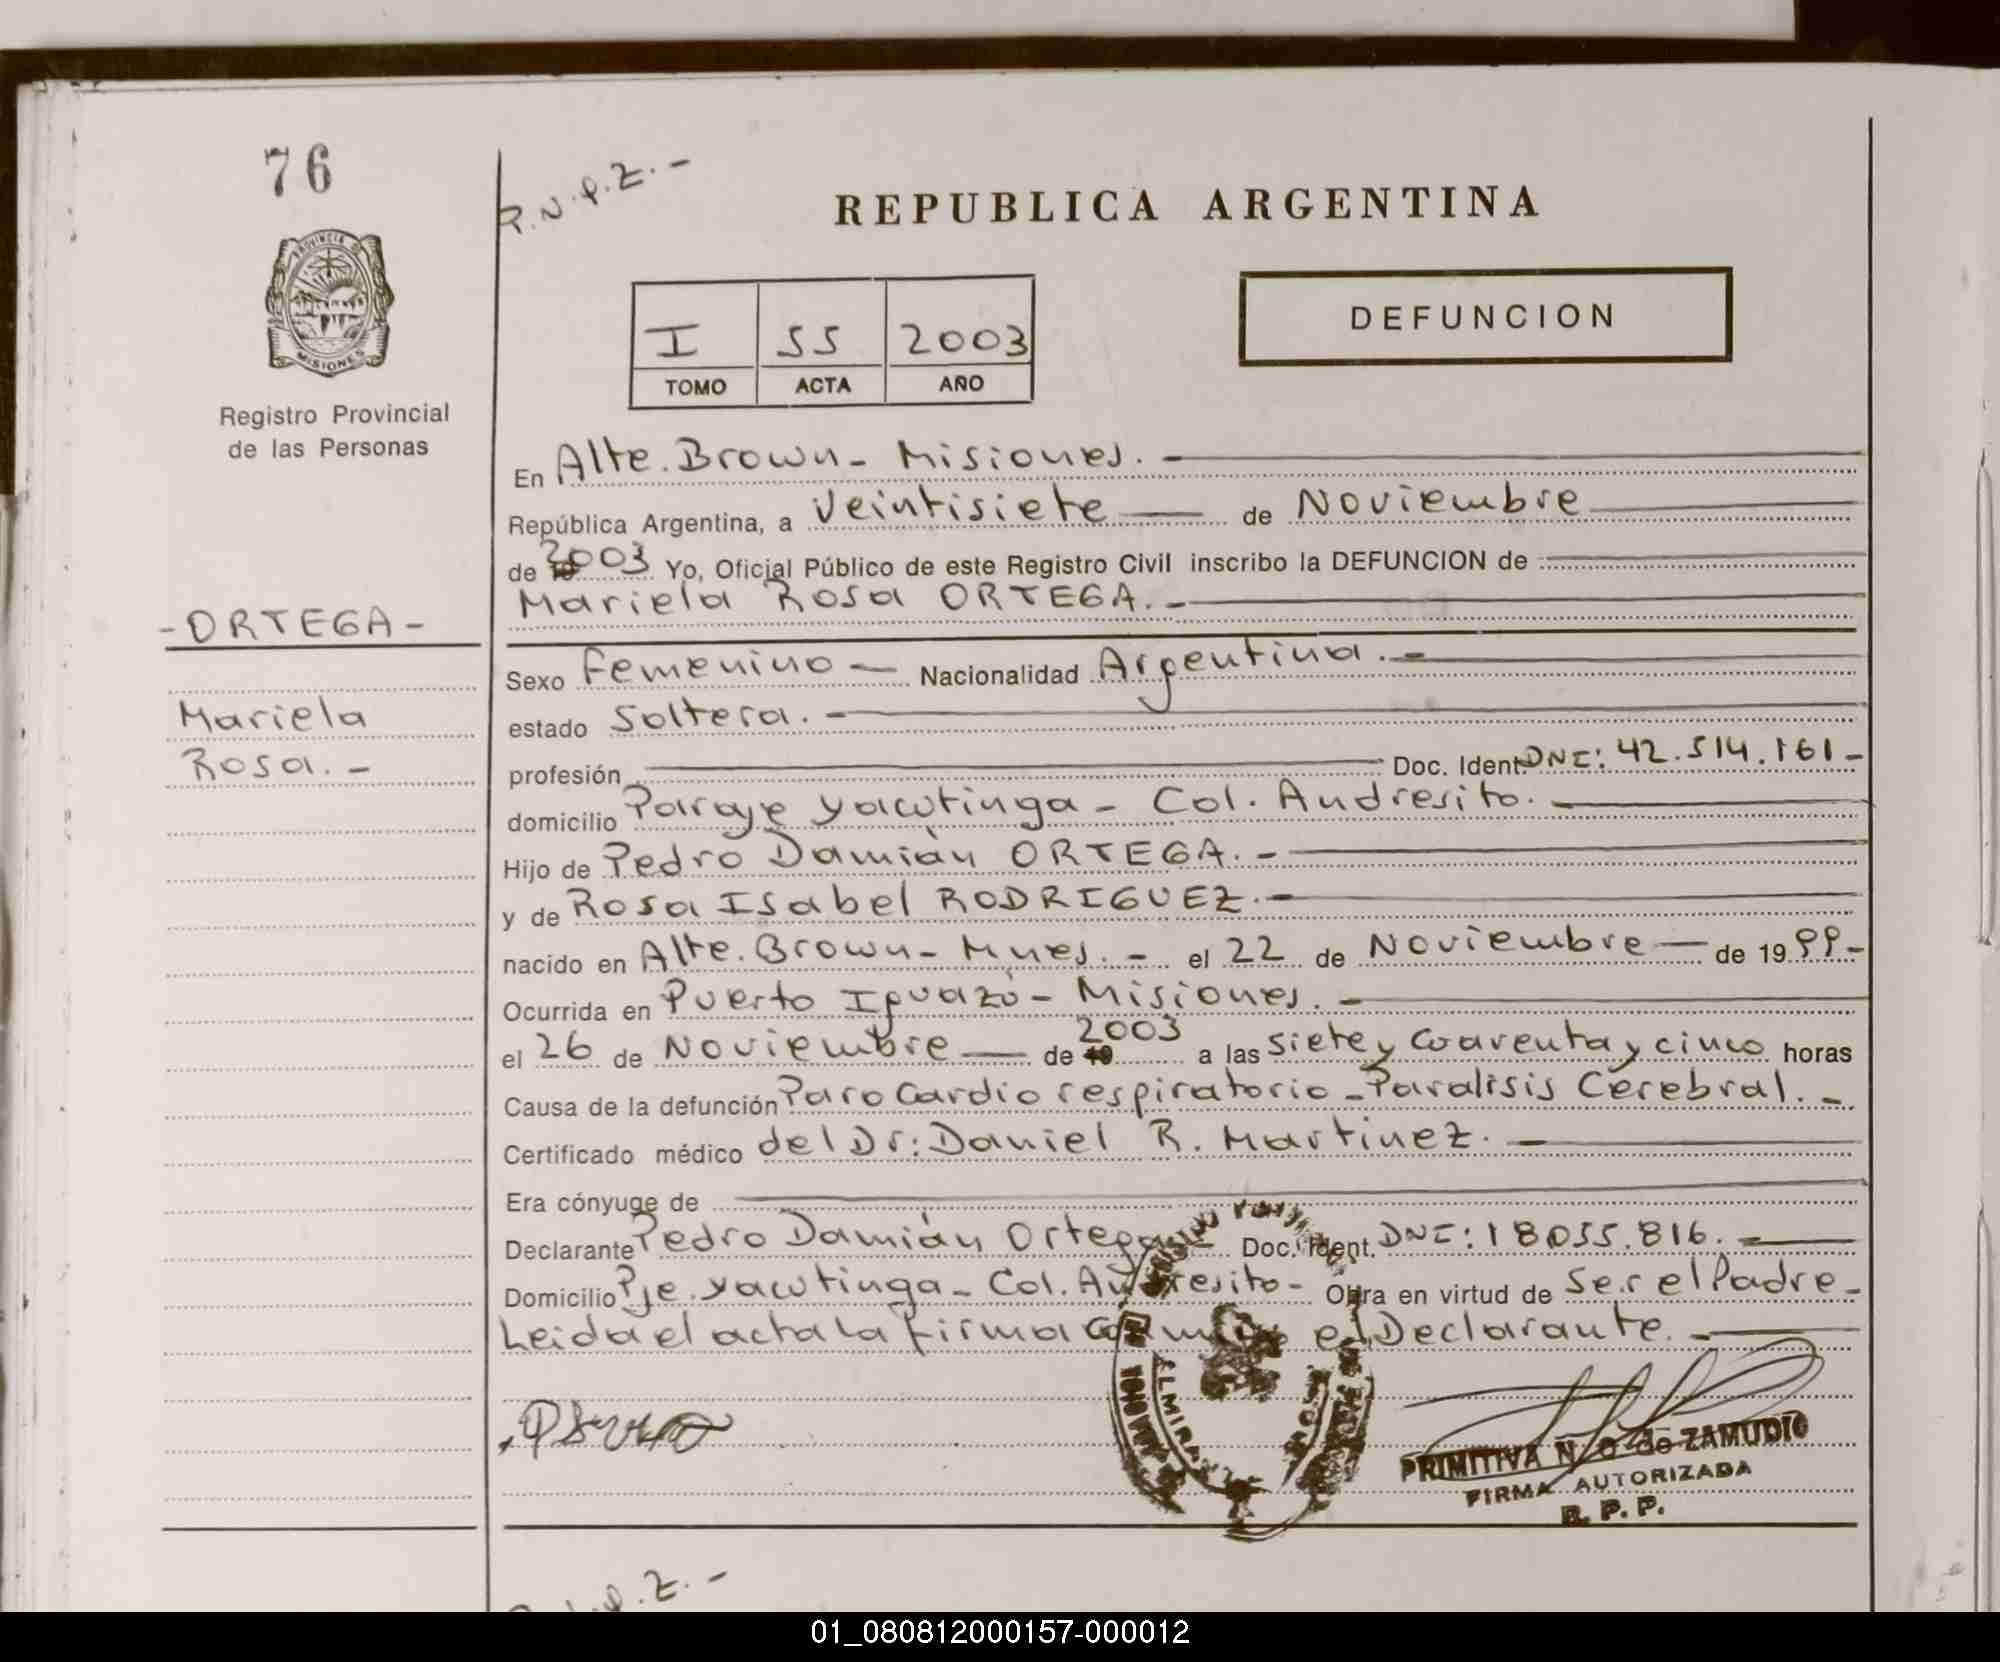 76
P.N.P.Z.-
REPUBLICA ARGENTINA
PROVINCIA DE
MISIONES
I 55 2003
TOMO ACTA AÑO
DEFUNCION
Registro Provincial
de las Personas
En Alte. Brown - Misiones. -
República Argentina, a Veintisiete — de Noviembre
de 2003 Yo, Oficial Público de este Registro Civil inscribo la DEFUNCION de
Mariela Rosa ORTEGA. -
- ORTEGA -
Mariela
Rosa. -
Sexo Femenino — Nacionalidad Argentina. -
estado Soltera. -
profesión — Doc. Ident. DNI: 42.514.161 -
domicilio Paraje Yacutinga - Col. Andresito. -
Hijo de Pedro Damián ORTEGA. -
y de Rosa Isabel RODRIGUEZ. -
nacido en Alte. Brown - Mnes. - el 22 de Noviembre — de 1999 -
Ocurrida en Puerto Iguazú - Misiones. -
el 26 de Noviembre — de 2003 a las siete y cuarenta y cinco horas
Causa de la defunción Paro Cardio respiratorio - Paralisis Cerebral. -
Certificado médico del Dr: Daniel R. Martinez. -
Era cónyuge de
Declarante Pedro Damián Ortega Doc. Ident. DNI: 18055.816. -
Domicilio Pje. Yacutinga - Col. Andresito - Obra en virtud de Ser el Padre -
Leida el acta la firma el Declarante. -
PRIMITIVA N. O. de ZAMUDIO
FIRMA AUTORIZADA
R. P. P.
01_080812000157-000012